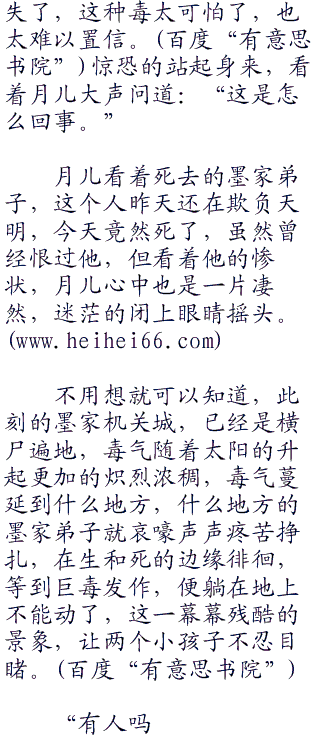 失了，这种毒太可怕了，也
太难以置信。(百度“有意思
书院”)惊恐的站起身来，看
着月儿大声问道：“这是怎
么回事。”
月儿看着死去的墨家弟
子，这个人昨天还在欺负天
明，今天竟然死了，虽然曾
经恨过他，但看着他的惨
状，月儿心中也是一片凄
然，迷茫的闭上眼睛摇头。
(www.heihei66.com)
不用想就可以知道，此
刻的墨家机关城，已经是横
尸遍地，毒气随着太阳的升
起更加的炽烈浓稠，毒气蔓
延到什么地方，什么地方的
墨家弟子就哀嚎声声疼苦挣
扎，在生和死的边缘徘徊，
等到巨毒发作，便躺在地上
不能动了，这一幕幕残酷的
景象，让两个小孩子不忍目
睹。(百度“有意思书院”)
“有人吗